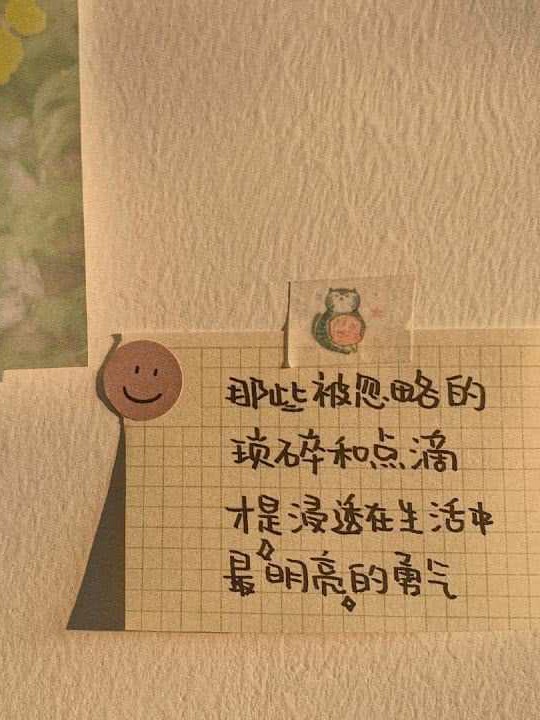 那些被忽略的
琐碎和点滴
才是浸透在生活中
最明亮的勇气